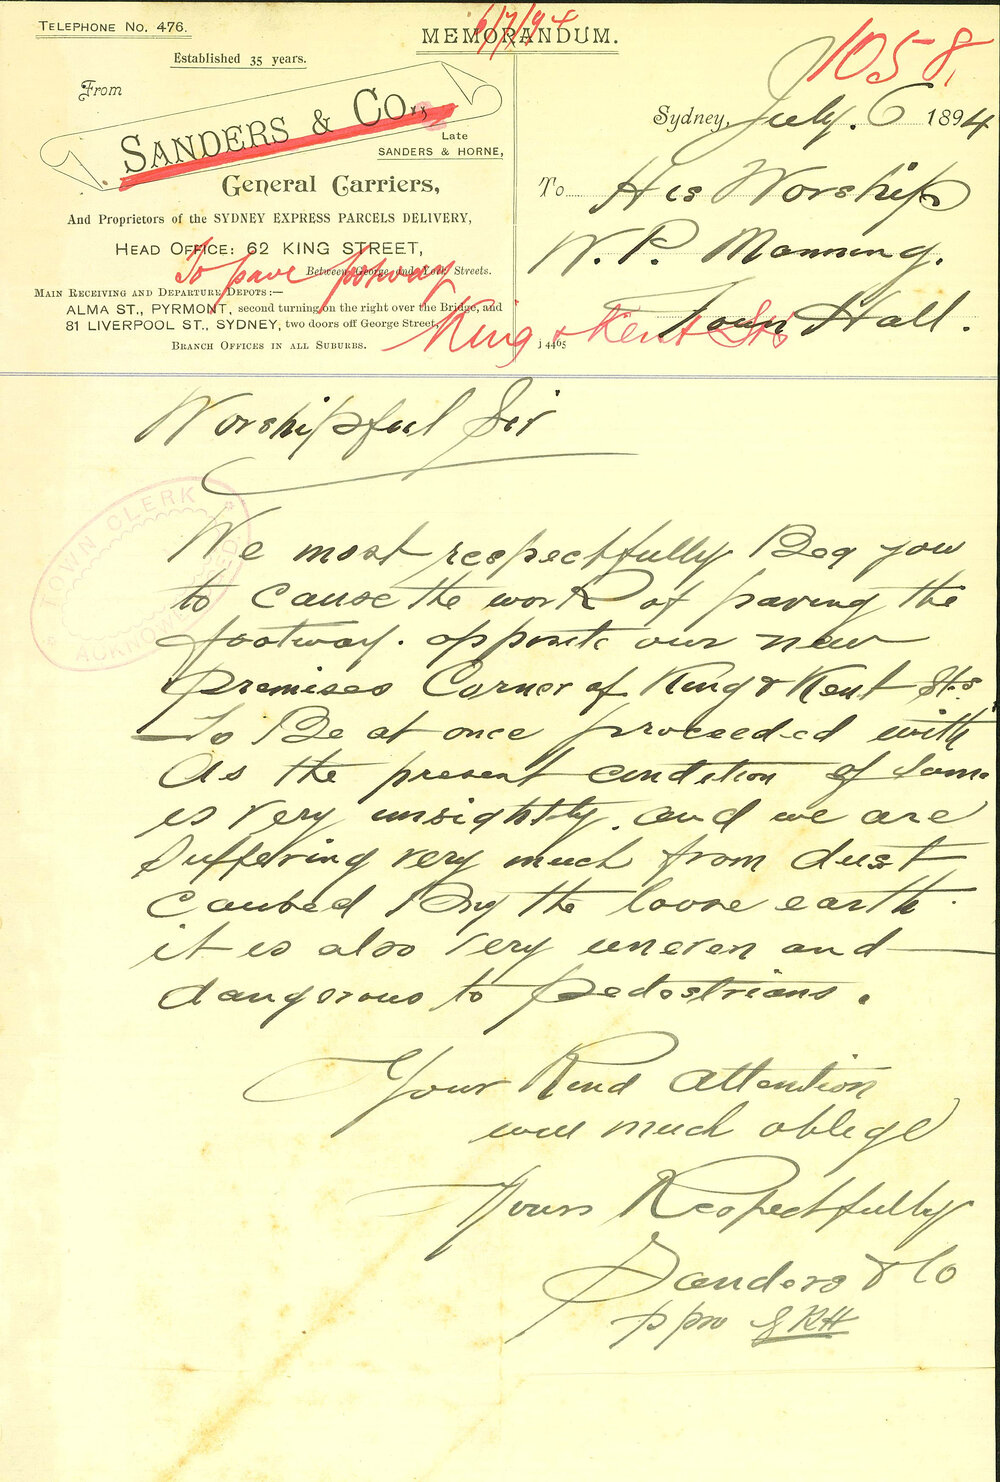 TELEPHONE NO. 476.
6/7/94
MEMORANDUM.
1058.
Established 35 years.
From
SANDERS & CO.,
Late
SANDERS & HORNE,
General Carriers,
And Proprietors of the SYDNEY EXPRESS PARCELS DELIVERY,
HEAD OFFICE: 62 KING STREET,
Between George and York Streets.
MAIN RECEIVING AND DEPARTURE DEPOTS:—
ALMA ST., PYRMONT, second turning on the right over the Bridge, and
81 LIVERPOOL ST., SYDNEY, two doors off George Street,
BRANCH OFFICES IN ALL SUBURBS.
To pave footway
King & Kent Sts
j 4465
Sydney, July. 6 1894
To His Worship
W. P. Manning.
Town Hall.
Worshipful Sir
TOWN CLERK
ACKNOWLEDGED
We most respectfully Beg you
to cause the work of paving the
footway. opposite our new
premises Corner of King & Kent Sts
To Be at once proceeded with
As the present condition of same
is very unsightly. and we are
Suffering very much from dust
caused By the loose earth.
it is also very uneven and
dangerous to pedestrians.
Your Kind Attention
will much oblige
Yours Respectfully
Sanders & Co
p pro